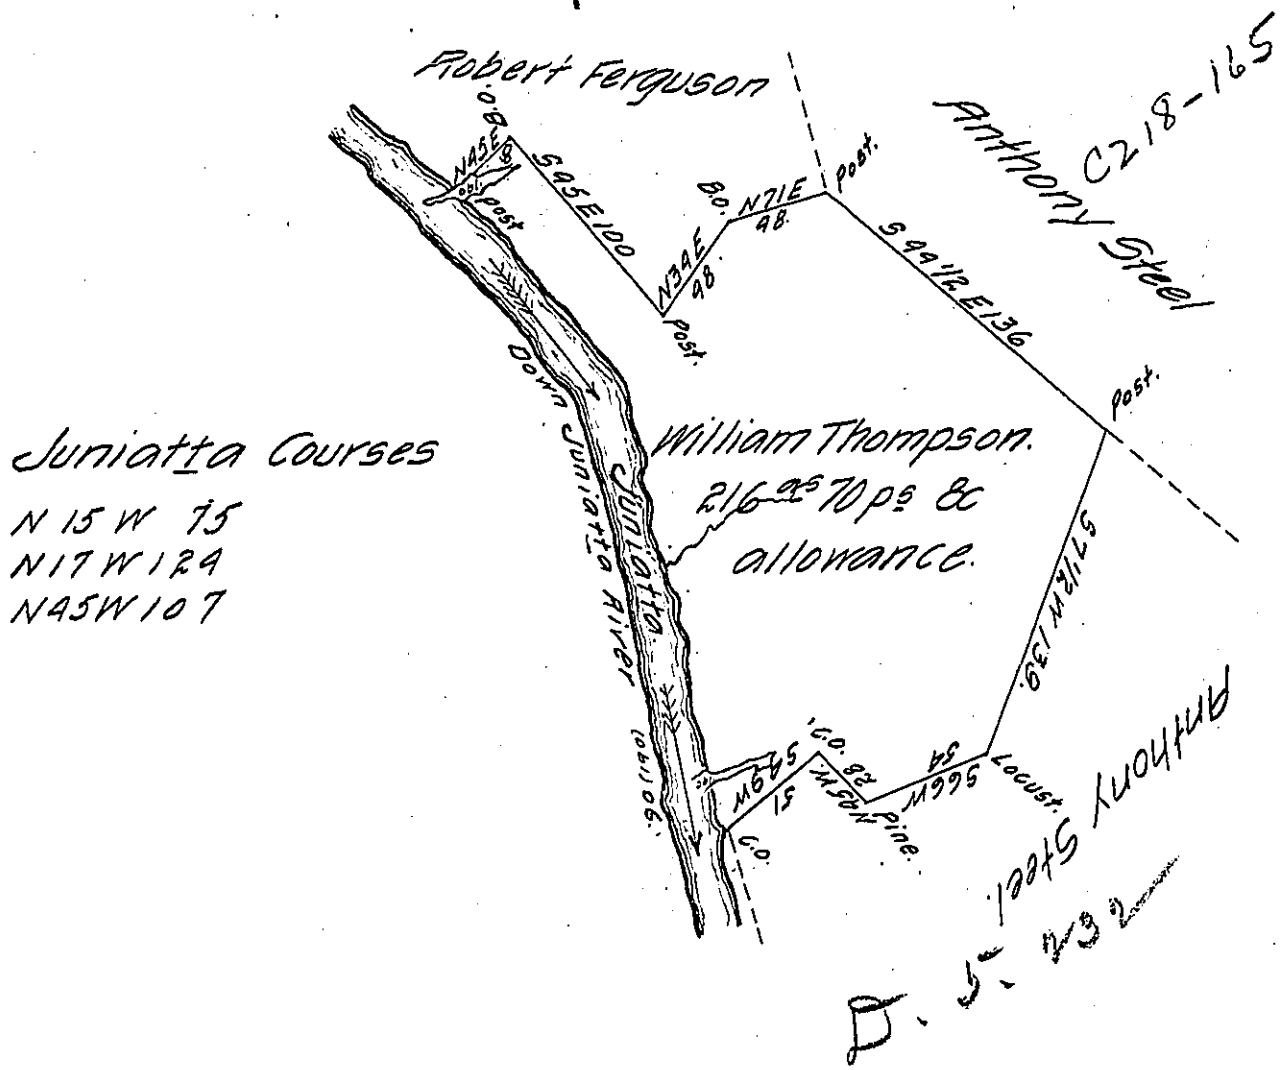 Robert Ferguson
Anthony Steel
C218-165
B.O.
N45E
8
obl.
post
S45E100
Post.
N34E
48
B.O.
N71E
48.
Post.
S 44 1/2 E136
Post.
Juniatta Courses
N 15 W 75
N17W124
N45W107
Down Juniatta River
Juniatta
William Thompson.
216 as 70 ps &c
allowance.
S7 1/2 W 139.
Locust.
S66W
54
Pine.
N45W
28
C.O.
S49W
51
C.O.
Anthony Steel.
D. 5. 232